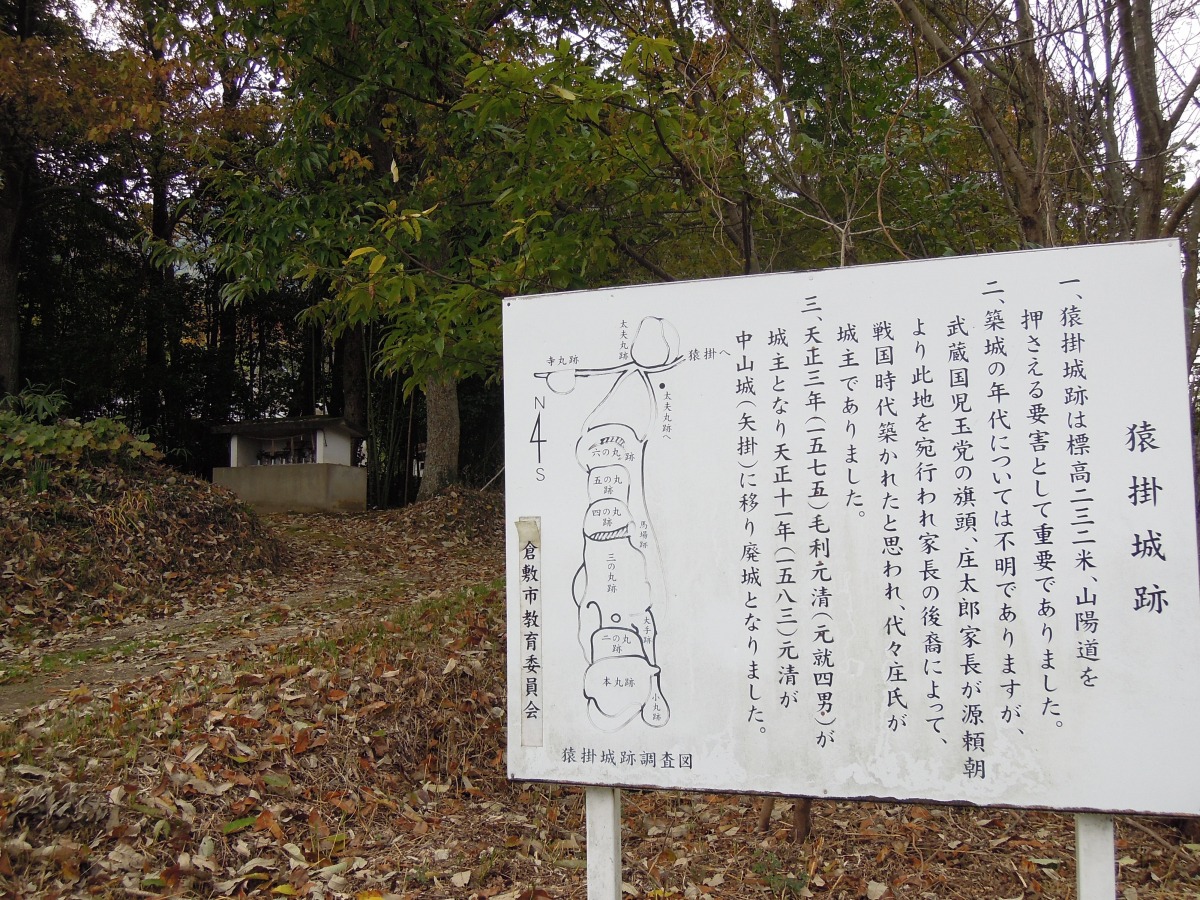 猿掛城跡
一、猿掛城跡は標高二三二米、山陽道を
押さえる要害として重要でありました。
二、築城の年代については不明でありますが、
武蔵国児玉党の旗頭、庄太郎家長が源頼朝
より此地を宛行われ家長の後裔によって、
戦国時代築かれたと思われ、代々庄氏が
城主でありました。
三、天正三年(一五七五)毛利元清(元就四男)が
城主となり天正十一年(一五八三)元清が
中山城(矢掛)に移り廃城となりました。
太夫丸跡
猿掛へ
寺丸跡
太夫丸跡へ
N
S
六の丸跡
五の丸
跡
四の丸
跡
馬場跡
三の丸跡
大手跡
二の丸
跡
本丸跡
小丸跡
猿掛城跡調査図
倉敷市教育委員会